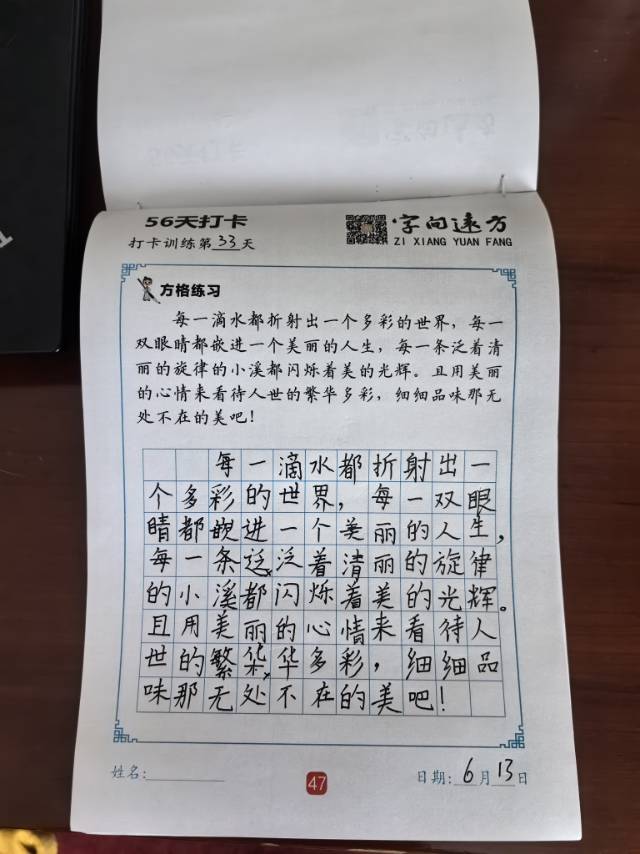 56天打卡
打卡训练第33天
字向远方
ZI XIANG YUAN FANG
方格练习
每一滴水都折射出一个多彩的世界，每一
双眼睛都嵌进一个美丽的人生，每一条泛着清
丽的旋律的小溪都闪烁着美的光辉。且用美丽
的心情来看待人世的繁华多彩，细细品味那无
处不在的美吧！
每一滴水都折射出一
个多彩的世界，每一双眼
睛都嵌进一个美丽的人生，
每一条泛着清丽的旋律
的小溪都闪烁着美的光辉。
且用美丽的心情来看待人
世的繁华多彩，细细品
味那无处不在的美吧！
姓名：
47
日期：6月13日